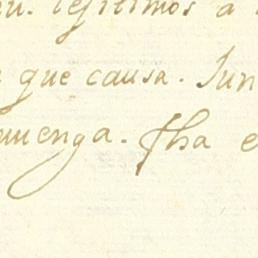 legitimos a
que causa. Jun
muenga. Ilha e